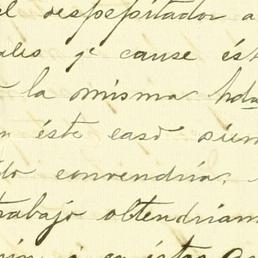 el despepitador a
ales qe cause ést
la misma hda
n éste caso siem
do convendría.
trabajo obtendríam